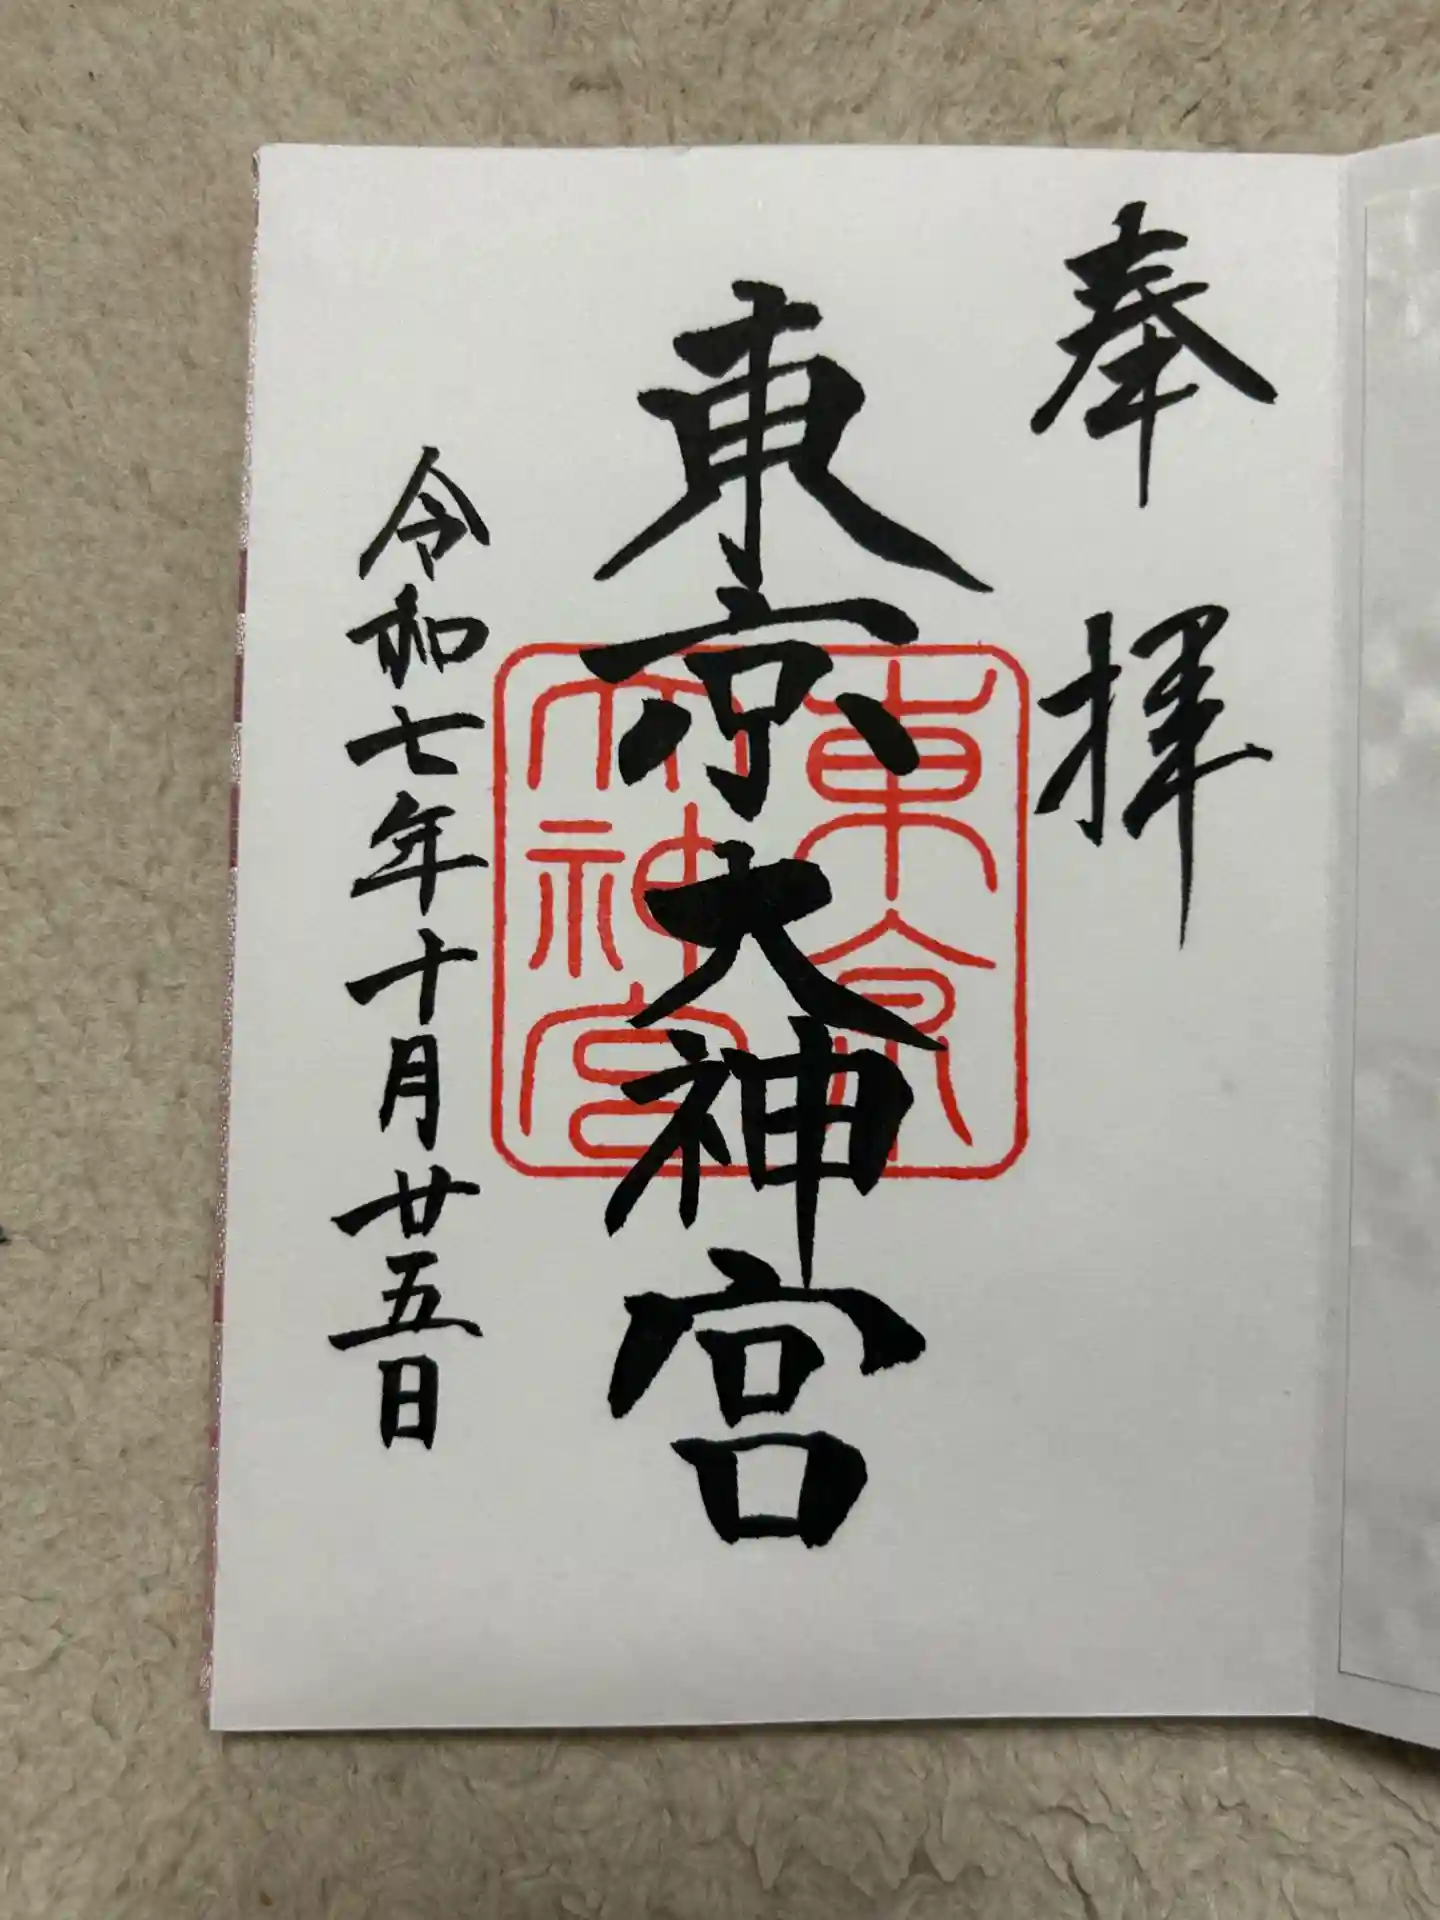 奉拝
東京大神宮
東京
大神宮
令和七年十月廿五日